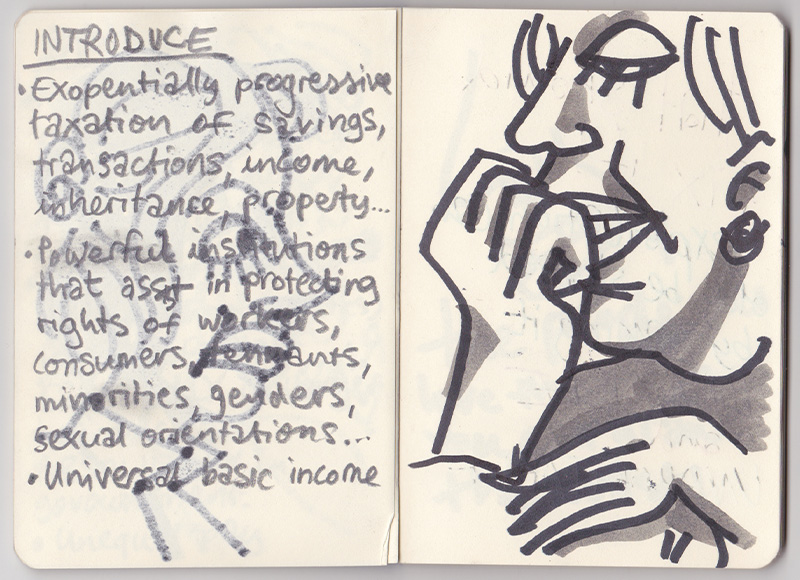 INTRODUCE
• Exopentially progressive
taxation of savings,
transactions, income,
inheritance, property...
• Powerful institutions
that assist in protecting
rights of workers,
consumers, tennants,
minorities, genders,
sexual orientations...
• Universal basic income